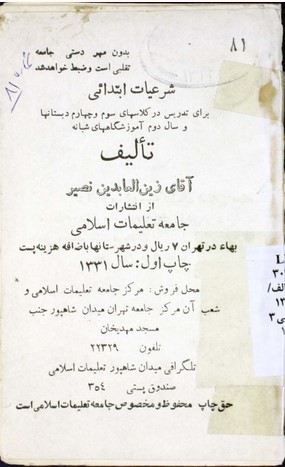 ۸۱
بدون مهر دستی جامعه
تقلبی است وضبط خواهدشد
شرعیات ابتدائی
برای تدریس در کلاسهای سوم و چهارم دبستانها
و سال دوم آموزشگاههای شبانه
تألیف
آقای زین‌العابدین نصیر
از انتشارات
جامعه تعلیمات اسلامی
بهاء در تهران ۷ ریال و در شهرستانها باضافه هزینه پست
چاپ اول: سال ۱۳۳۱
محل فروش: مرکز جامعه تعلیمات اسلامی و
شعب آن مرکز جامعه تهران میدان شاهپور جنب
مسجد مهدیخان
تلفون ۲۲۳۲۹
تلگرافی میدان شاهپور تعلیمات اسلامی
صندوق پستی ۳۵۴
حق چاپ محفوظ و مخصوص جامعه تعلیمات اسلامی است